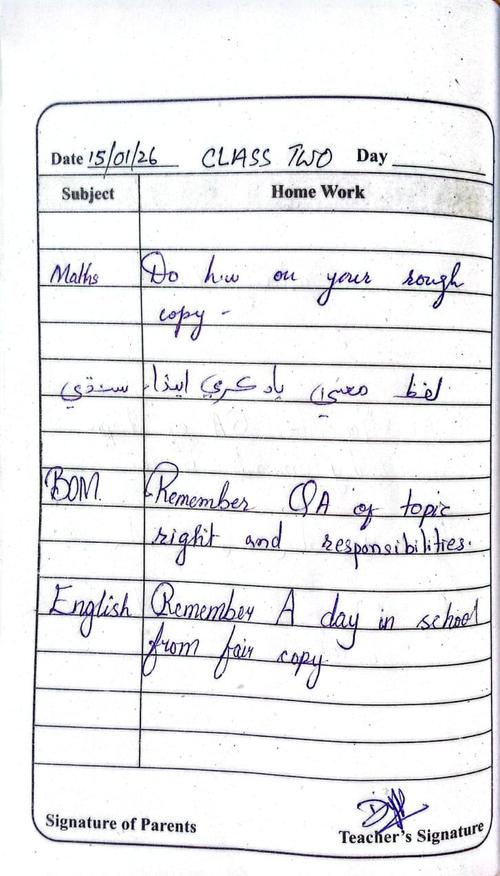 Date 15/01/26 CLASS TWO Day
Subject Home Work
Maths Do h.w on your rough
copy -
سنڌي لفظ معنيٰ ياد ڪري ايندا.
BOM. Remember QA of topic
right and responsibilities.
English Remember A day in school
from fair copy.
Signature of Parents Teacher's Signature